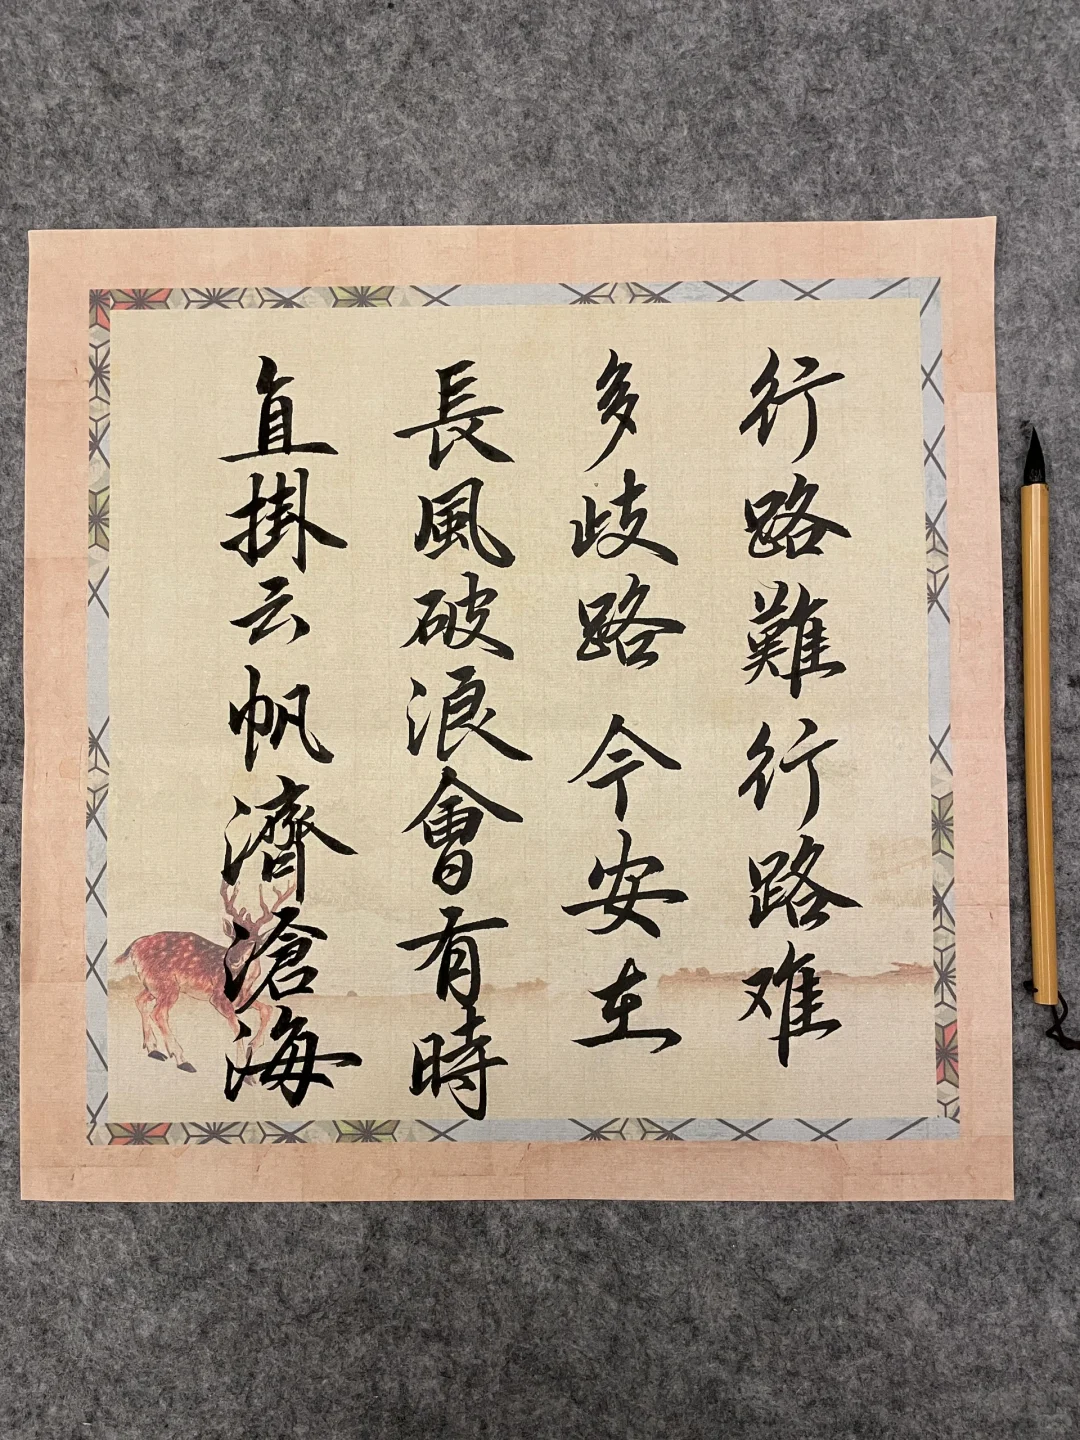 行路難行路难
多歧路今安在
長風破浪會有時
直掛云帆濟滄海